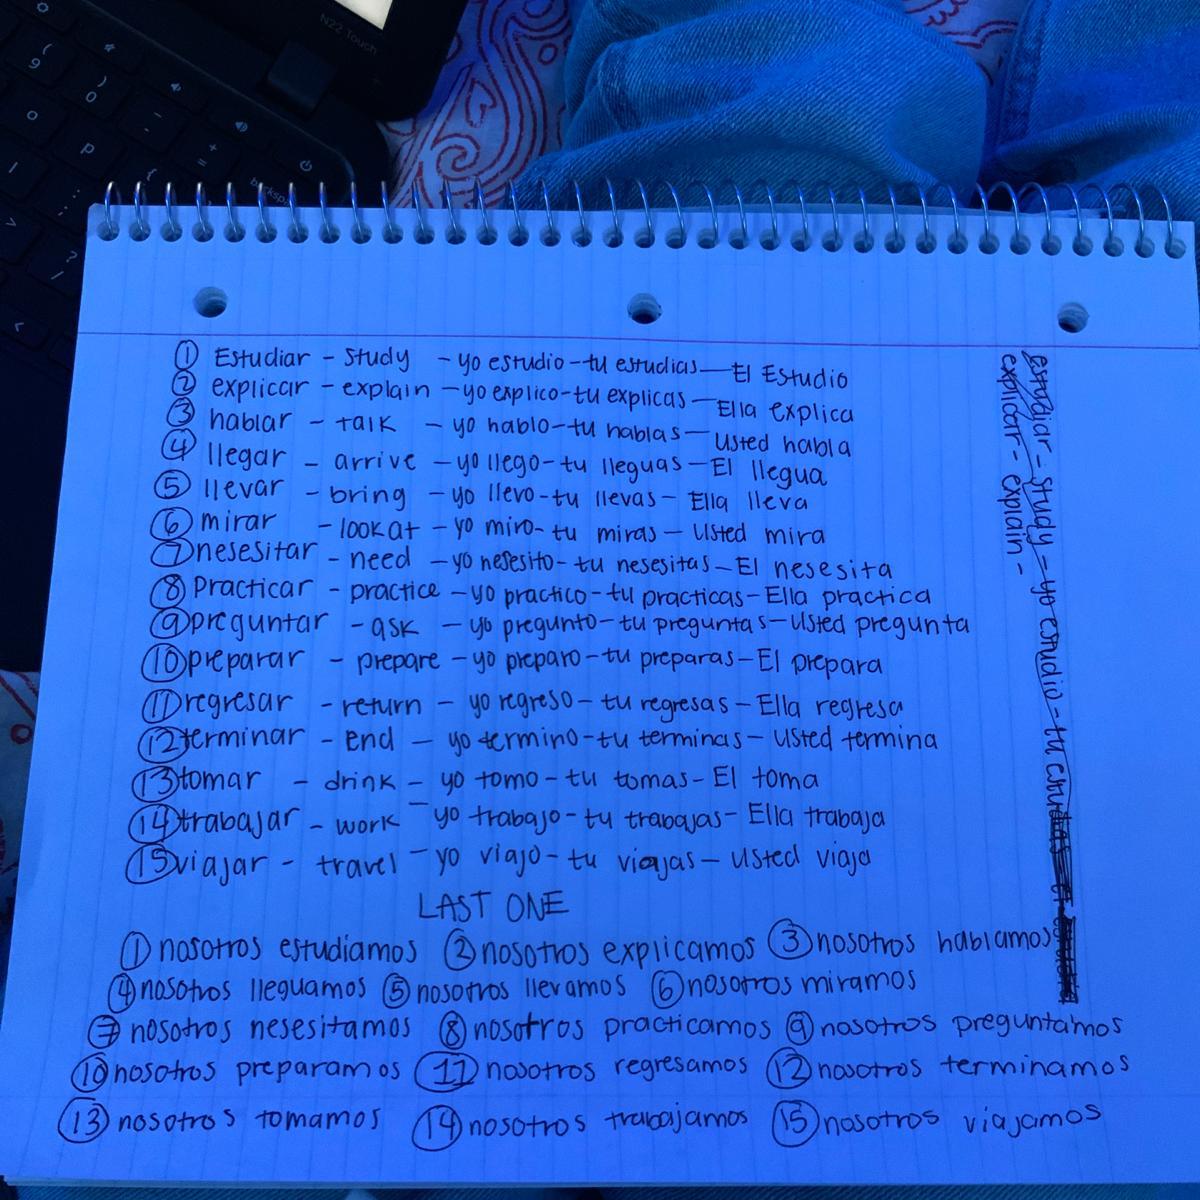 N22 Touch
backsp
① Estudiar - study - yo estudio - tu estudias - El Estudio
② explicar - explain - yo explico - tu explicas - Ella explica
③ hablar - talk - yo hablo - tu hablas - Usted habla
④ llegar - arrive - yo llego - tu lleguas - El llegua
⑤ llevar - bring - yo llevo - tu llevas - Ella lleva
⑥ mirar - look at - yo miro - tu miras - Usted mira
⑦ nesesitar - need - yo nesesito - tu nesesitas - El nesesita
⑧ Practicar - practice - yo practico - tu practicas - Ella practica
⑨ preguntar - ask - yo pregunto - tu preguntas - Usted pregunta
⑩ preparar - prepare - yo preparo - tu preparas - El prepara
⑪ regresar - return - yo regreso - tu regresas - Ella regresa
⑫ terminar - End - yo termino - tu terminas - Usted termina
⑬ tomar - drink - yo tomo - tu tomas - El toma
⑭ trabajar - work - yo trabajo - tu trabajas - Ella trabaja
⑮ viajar - travel - yo viajo - tu viajas - Usted viaja
LAST ONE
① nosotros estudiamos ② nosotros explicamos ③ nosotros hablamos
④ nosotros lleguamos ⑤ nosotros llevamos ⑥ nosotros miramos
⑦ nosotros nesesitamos ⑧ nosotros practicamos ⑨ nosotros preguntamos
⑩ nosotros preparamos ⑪ nosotros regresamos ⑫ nosotros terminamos
⑬ nosotros tomamos ⑭ nosotros trabajamos ⑮ nosotros viajamos
estudiar - study - yo estudio - tu estudias El
explicar - explain -